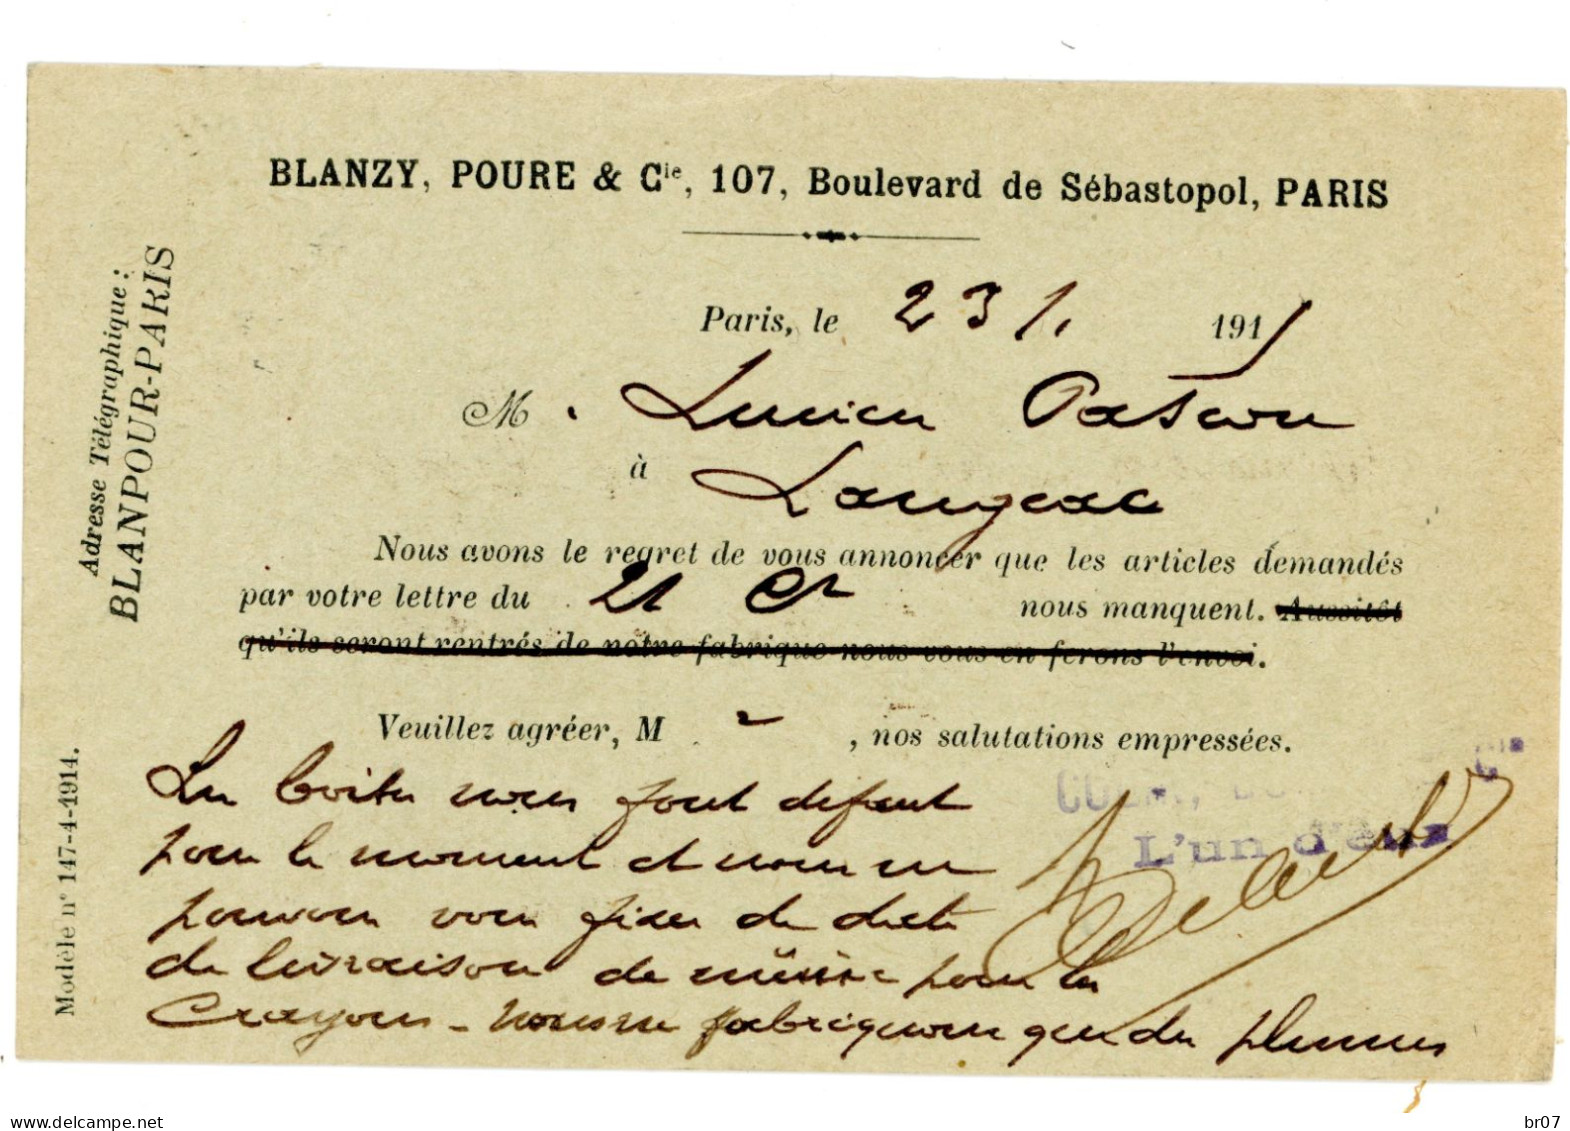 BLANZY, POURE & Cie, 107, Boulevard de Sébastopol, PARIS
Adresse Télégraphique :
BLANPOUR-PARIS
Paris, le 23 1. 191
M. Lucien
à Langeac
Nous avons le regret de vous annoncer que les articles demandés
par votre lettre du 21 ct nous manquent. Aussitôt
qu'ils seront rentrés de notre fabrique nous vous en ferons l'envoi.
Veuillez agréer, M r, nos salutations empressées.
L'un d'eux
Les boites nous font defaut
pour le moment et nous ne
pouvons vous fixer de date
de livraison de même pour les
Crayons - nous ne fabriquons que des plumes
Modèle n° 147-4-1914.
delcampe.net
br07